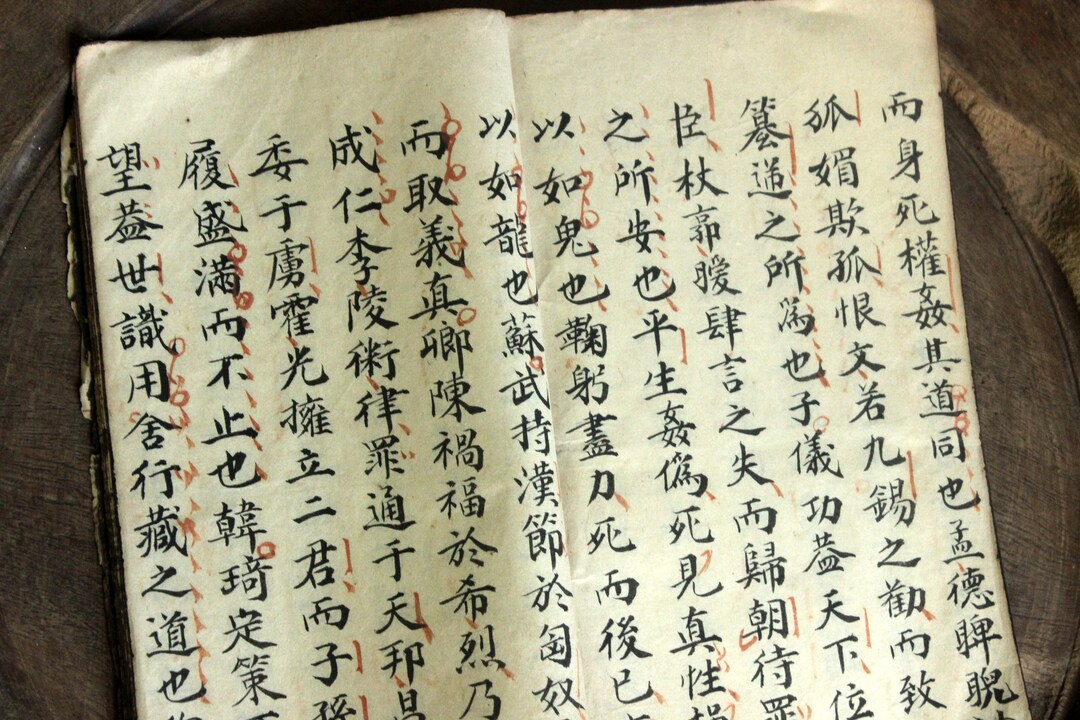 而身死權姦其道同也孟德睥睨
狐媚欺孤恨文若九錫之勸而致
篡逆之所為也子儀功葢天下位
臣杖郭曖肆言之失而歸朝待罪
之所安也平生姦僞死見真性
以如鬼也鞠躬盡力死而後已
以如龍也蘇武持漢節於匈奴
而取義真卿陳禍福於希烈乃
成仁李陵衛律罪通于天邦昌
委于虜霍光擁立二君而子孫
履盛滿而不止也韓琦定策
望葢世識用舍行藏之道也